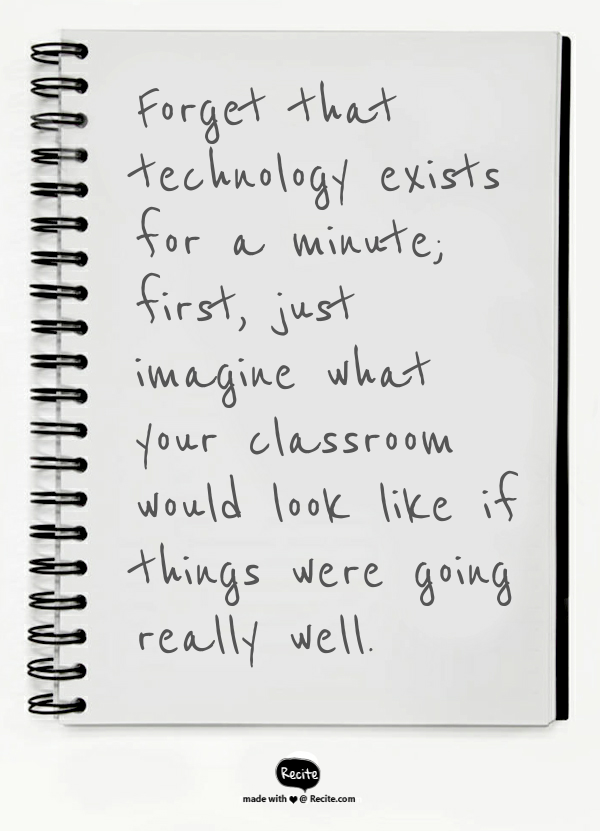 Forget that
technology exists
for a minute;
first, just
imagine what
your classroom
would look like if
things were going
really well.
Recite
made with ♥ @ Recite.com